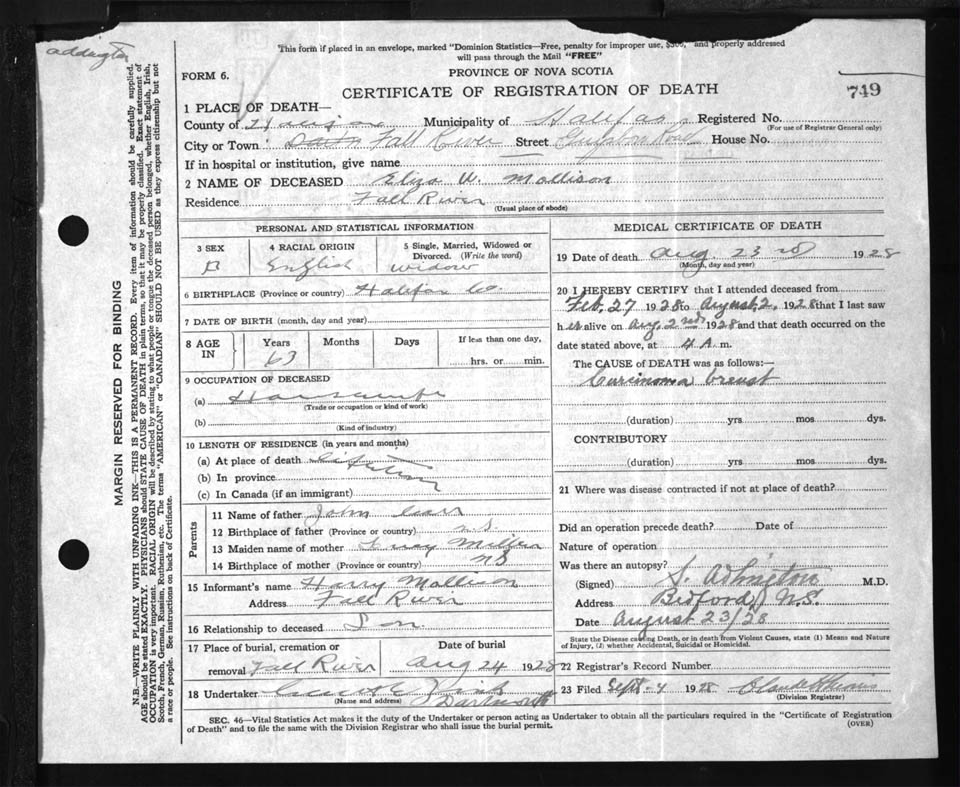 This form if placed in an envelope, marked "Dominion Statistics—Free, penalty for improper use, $300, and properly addressed
will pass through the Mail "FREE"
FORM 6.
PROVINCE OF NOVA SCOTIA
CERTIFICATE OF REGISTRATION OF DEATH
749
1 PLACE OF DEATH—
County of Municipality of Halifax Registered No.
(For use of Registrar General only)
City or Town Fall River Street House No.
If in hospital or institution, give name
2 NAME OF DECEASED Eliza W. Mollison
Residence Fall River
(Usual place of abode)
PERSONAL AND STATISTICAL INFORMATION
3 SEX 4 RACIAL ORIGIN 5 Single, Married, Widowed or Divorced. (Write the word)
English widow
6 BIRTHPLACE (Province or country) Halifax Co.
7 DATE OF BIRTH (month, day and year)
8 AGE IN Years Months Days If less than one day,
63 hrs. or min.
9 OCCUPATION OF DECEASED
(a) Housewife
(Trade or occupation or kind of work)
(b)
(Kind of industry)
10 LENGTH OF RESIDENCE (in years and months)
(a) At place of death
(b) In province
(c) In Canada (if an immigrant)
Parents
11 Name of father John Carr
12 Birthplace of father (Province or country) N.S.
13 Maiden name of mother
14 Birthplace of mother (Province or country) NS
15 Informant's name Harry Mollison
Address Fall River
16 Relationship to deceased Son
17 Place of burial, cremation or Date of burial
removal Fall River Aug 24 1928
18 Undertaker
(Name and address) Dartmouth
MEDICAL CERTIFICATE OF DEATH
19 Date of death Aug. 23rd 1928
(Month, day and year)
20 I HEREBY CERTIFY that I attended deceased from
Feb. 27 1928 to August 2, 1928 that I last saw
her alive on Aug. 2nd 1928 and that death occurred on the
date stated above, at 4 A. m.
The CAUSE OF DEATH was as follows:—
Carcinoma breast
(duration) yrs mos dys.
CONTRIBUTORY
(duration) yrs mos dys.
21 Where was disease contracted if not at place of death?
Did an operation precede death? Date of
Nature of operation
Was there an autopsy?
(Signed) M.D.
Address Bedford, N.S.
Date August 23/28
State the Disease causing Death, or in death from Violent Causes, state (1) Means and Nature
of Injury, (2) whether Accidental, Suicidal or Homicidal.
22 Registrar's Record Number
23 Filed Sept. 4 1928
(Division Registrar)
SEC. 46—Vital Statistics Act makes it the duty of the Undertaker or person acting as Undertaker to obtain all the particulars required in the "Certificate of Registration
of Death" and to file the same with the Division Registrar who shall issue the burial permit.
(OVER)
MARGIN RESERVED FOR BINDING
N.B.—WRITE PLAINLY WITH UNFADING INK—THIS IS A PERMANENT RECORD. Every item of information should be carefully supplied.
AGE should be stated EXACTLY. PHYSICIANS should STATE CAUSE OF DEATH in plain terms, so that it may be properly classified. Exact statement of
OCCUPATION is very important. RACIAL ORIGIN will be described by stating to what people or tongue the deceased person belonged, whether English, Irish,
Scotch, French, German, Russian, Ruthenian, etc. The terms "AMERICAN" or "CANADIAN" SHOULD NOT BE USED as they express citizenship but not
a race or people. See instructions on back of Certificate.